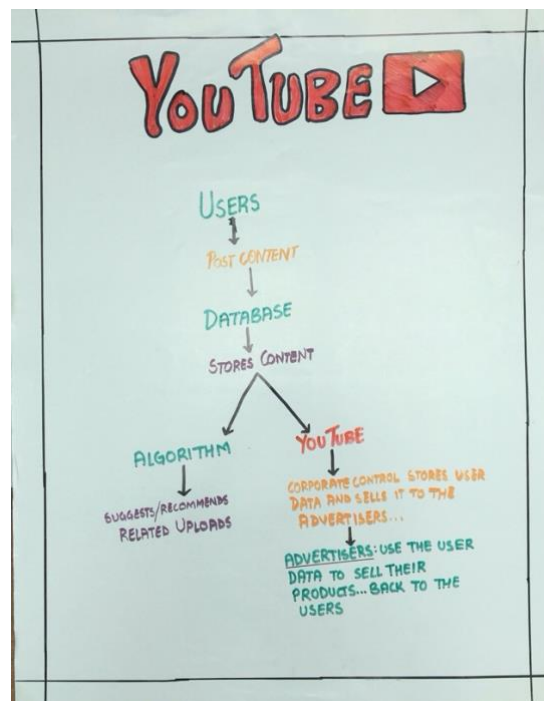 YOUTUBE
USERS
POST CONTENT
DATABASE
STORES CONTENT
ALGORITHM
SUGGESTS/RECOMMENDS
RELATED UPLOADS
YOUTUBE
CORPORATE CONTROL STORES USER
DATA AND SELLS IT TO THE
ADVERTISERS...
ADVERTISERS: USE THE USER
DATA TO SELL THEIR
PRODUCTS... BACK TO THE
USERS